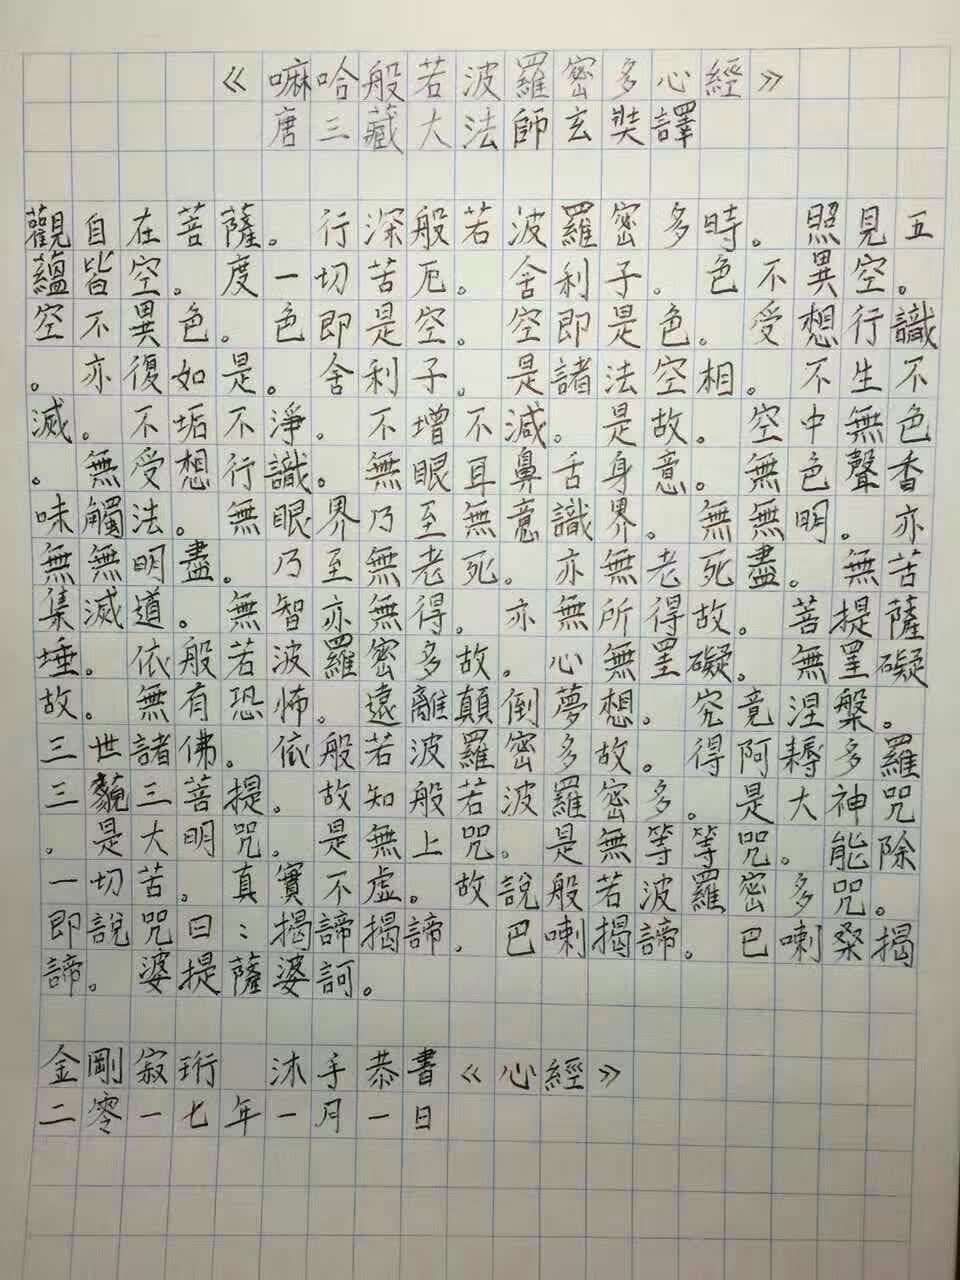 《嘛哈般若波羅密多心經》
唐三藏大法師玄奘譯
觀自在菩薩。行深般若波羅密多時。照見五
蘊皆空。度一切苦厄。舍利子。色不異空。
空不異色。色即是空。空即是色。受想行識
。亦復如是。舍利子。是諸法空相。不生不
滅。不垢不淨。不增不減。是故。空中無色
。無受想行識。無眼耳鼻舌身意。無色聲香
味觸法。無眼界乃至無意識界。無無明。亦
無無明盡。乃至無老死。亦無老死盡。無苦
集滅道。無智亦無得。亦無所得故。菩提薩
埵。依般若波羅密多故。心無罣礙。無罣礙
故。無有恐怖。遠離顛倒夢想。究竟涅槃。
三世諸佛。依般若波羅密多故。得阿耨多羅
三藐三菩提。故知般若波羅密多。是大神咒
。是大明咒。是無上咒。是無等等咒。能除
一切苦。真實不虛。故說般若波羅密多咒。
即說咒曰：揭諦揭諦。巴喇揭諦。巴喇桑揭
諦。婆提薩婆訶。
金剛寂珩 沐手恭書《心經》
二零一七年一月一日